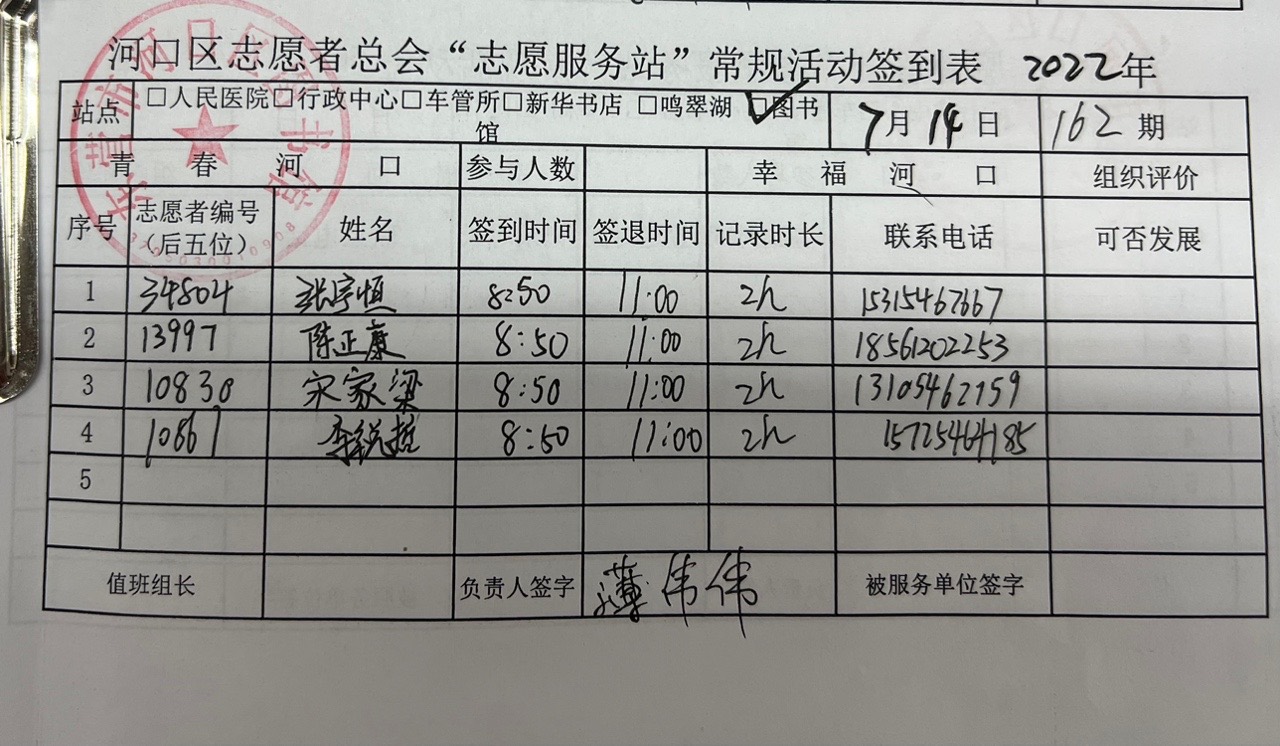 河口区志愿者总会“志愿服务站”常规活动签到表 2022年
站点 □人民医院□行政中心□车管所□新华书店 □鸣翠湖 ☑图书馆 7月14日 162期
青春河口 参与人数 幸福河口 组织评价
序号 志愿者编号（后五位） 姓名 签到时间 签退时间 记录时长 联系电话 可否发展
1 34804 张宇恒 8:50 11:00 2h 15315467667
2 13997 陈正康 8:50 11:00 2h 18561202253
3 10830 宋家梁 8:50 11:00 2h 13105462759
4 10867 李锐哲 8:50 11:00 2h
5
值班组长 负责人签字 薄伟伟 被服务单位签字